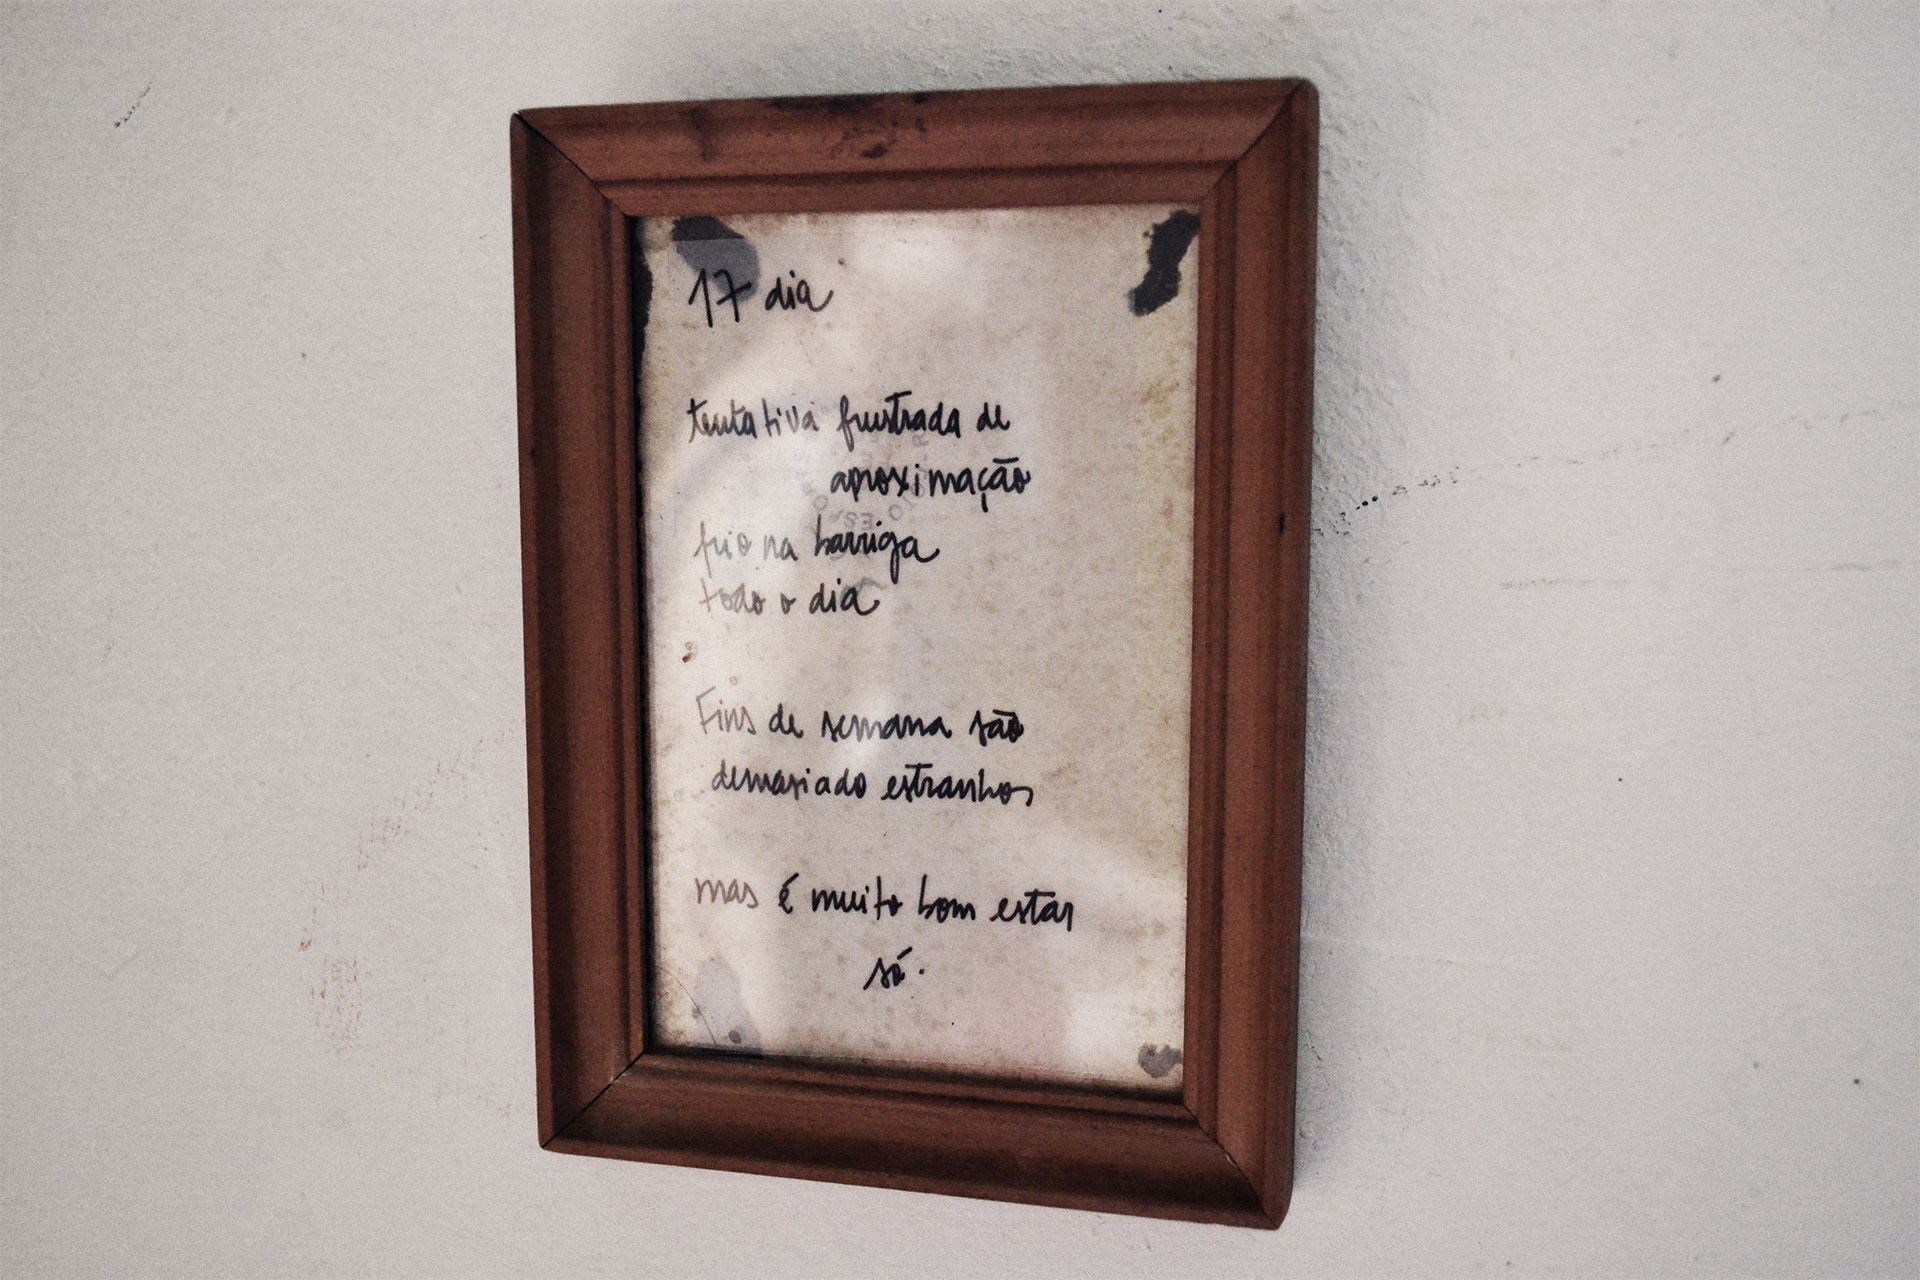 17 dia
tentativa frustrada de
aproximação
frio na barriga
todo o dia
Fins de semana são
demasiado estranhos
mas é muito bom estar
só.